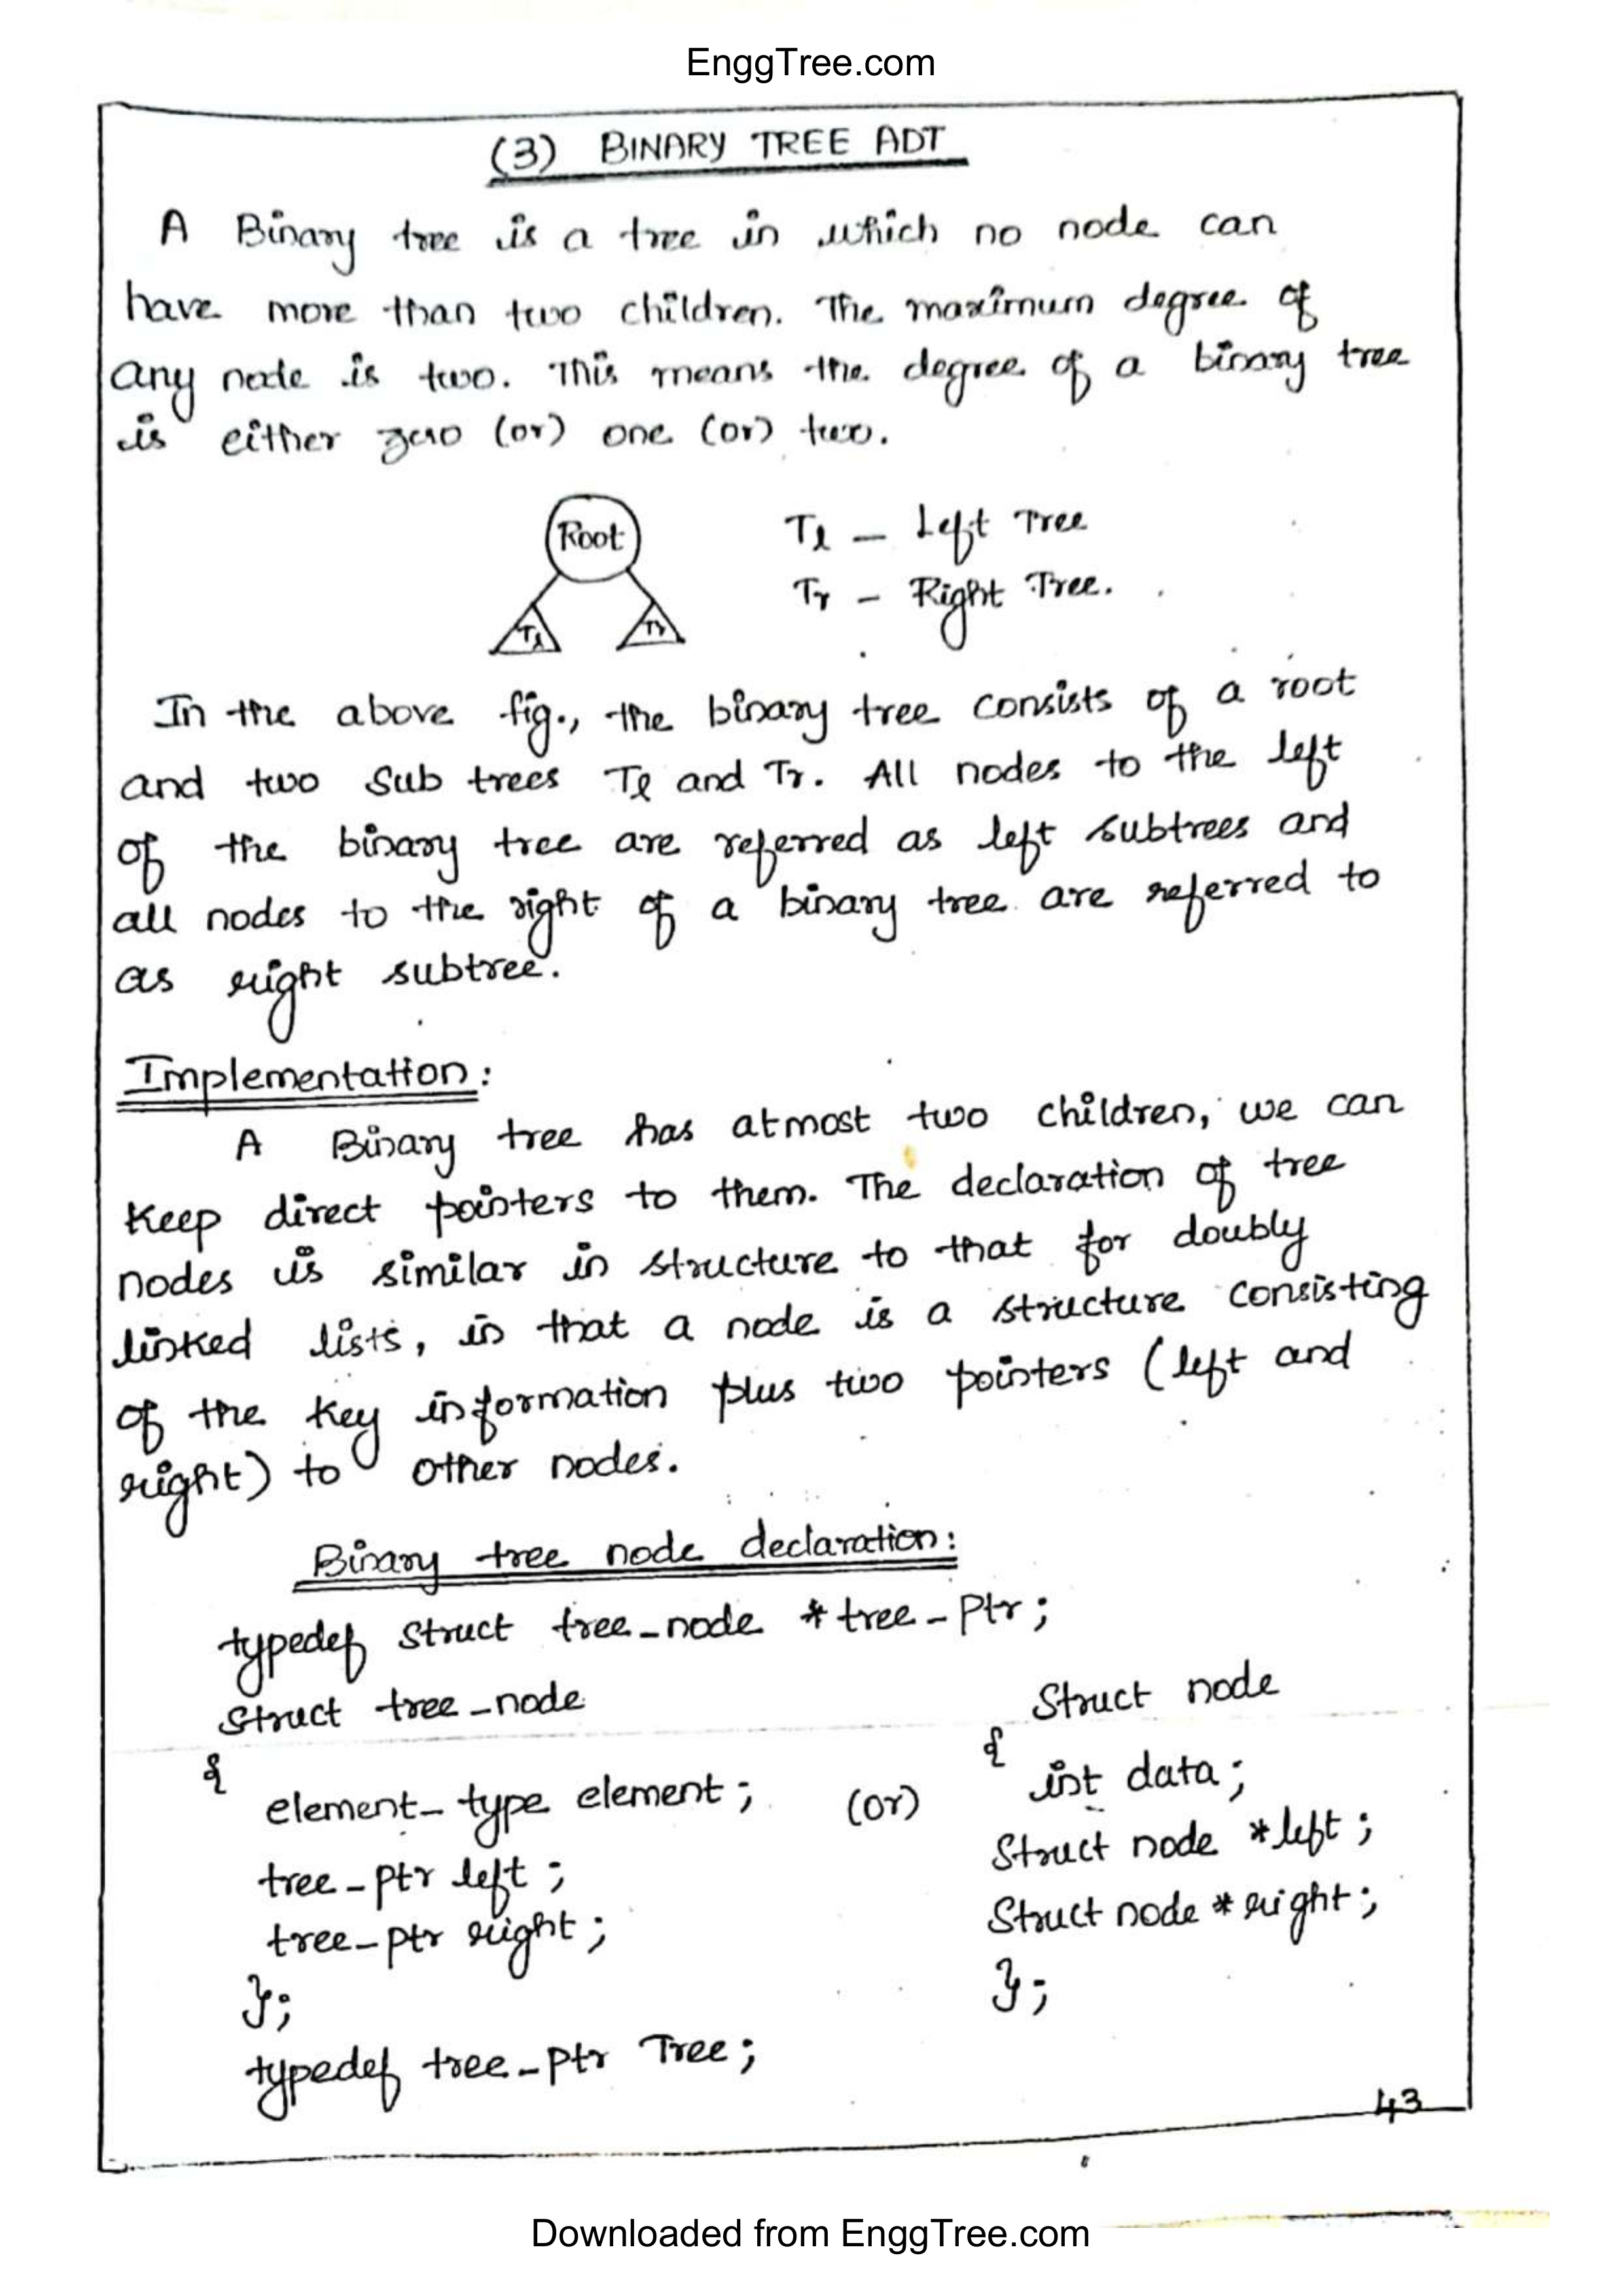 EnggTree.com
(3) BINARY TREE ADT
A Binary tree is a tree in which no node can
have more than two children. The maximum degree of
any node is two. This means the degree of a binary tree
is either zero (or) one (or) two.
Root
Tl Tr
Tl – Left Tree
Tr – Right Tree.
In the above fig., the binary tree consists of a root
and two sub trees Tl and Tr. All nodes to the left
of the binary tree are referred as left subtrees and
all nodes to the right of a binary tree are referred to
as right subtree.
Implementation:
A Binary tree has atmost two children, we can
keep direct pointers to them. The declaration of tree
nodes is similar in structure to that for doubly
linked lists, in that a node is a structure consisting
of the key information plus two pointers (left and
right) to other nodes.
Binary tree node declaration:
typedef struct tree_node *tree_ptr;
struct tree_node
{
element_type element;
tree_ptr left;
tree_ptr right;
};
typedef tree_ptr Tree;
(or)
Struct node
{
int data;
Struct node *left;
Struct node *right;
};
43
Downloaded from EnggTree.com